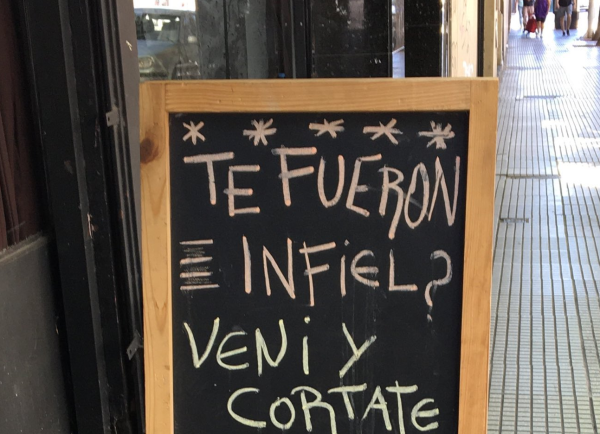 * * * * *
TE FUERON
INFiEL?
VENi Y
CORTATE